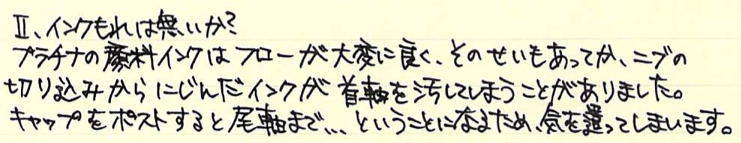 II、インクもれは無いか?
プラチナの顔料インクはフローが大変に良く、そのせいもあってか、ニブの
切り込みからにじんだインクが首軸を汚してしまうことがありました。
キャップをポストすると尾軸まで、、、ということになるため、気を遣ってしまいます。